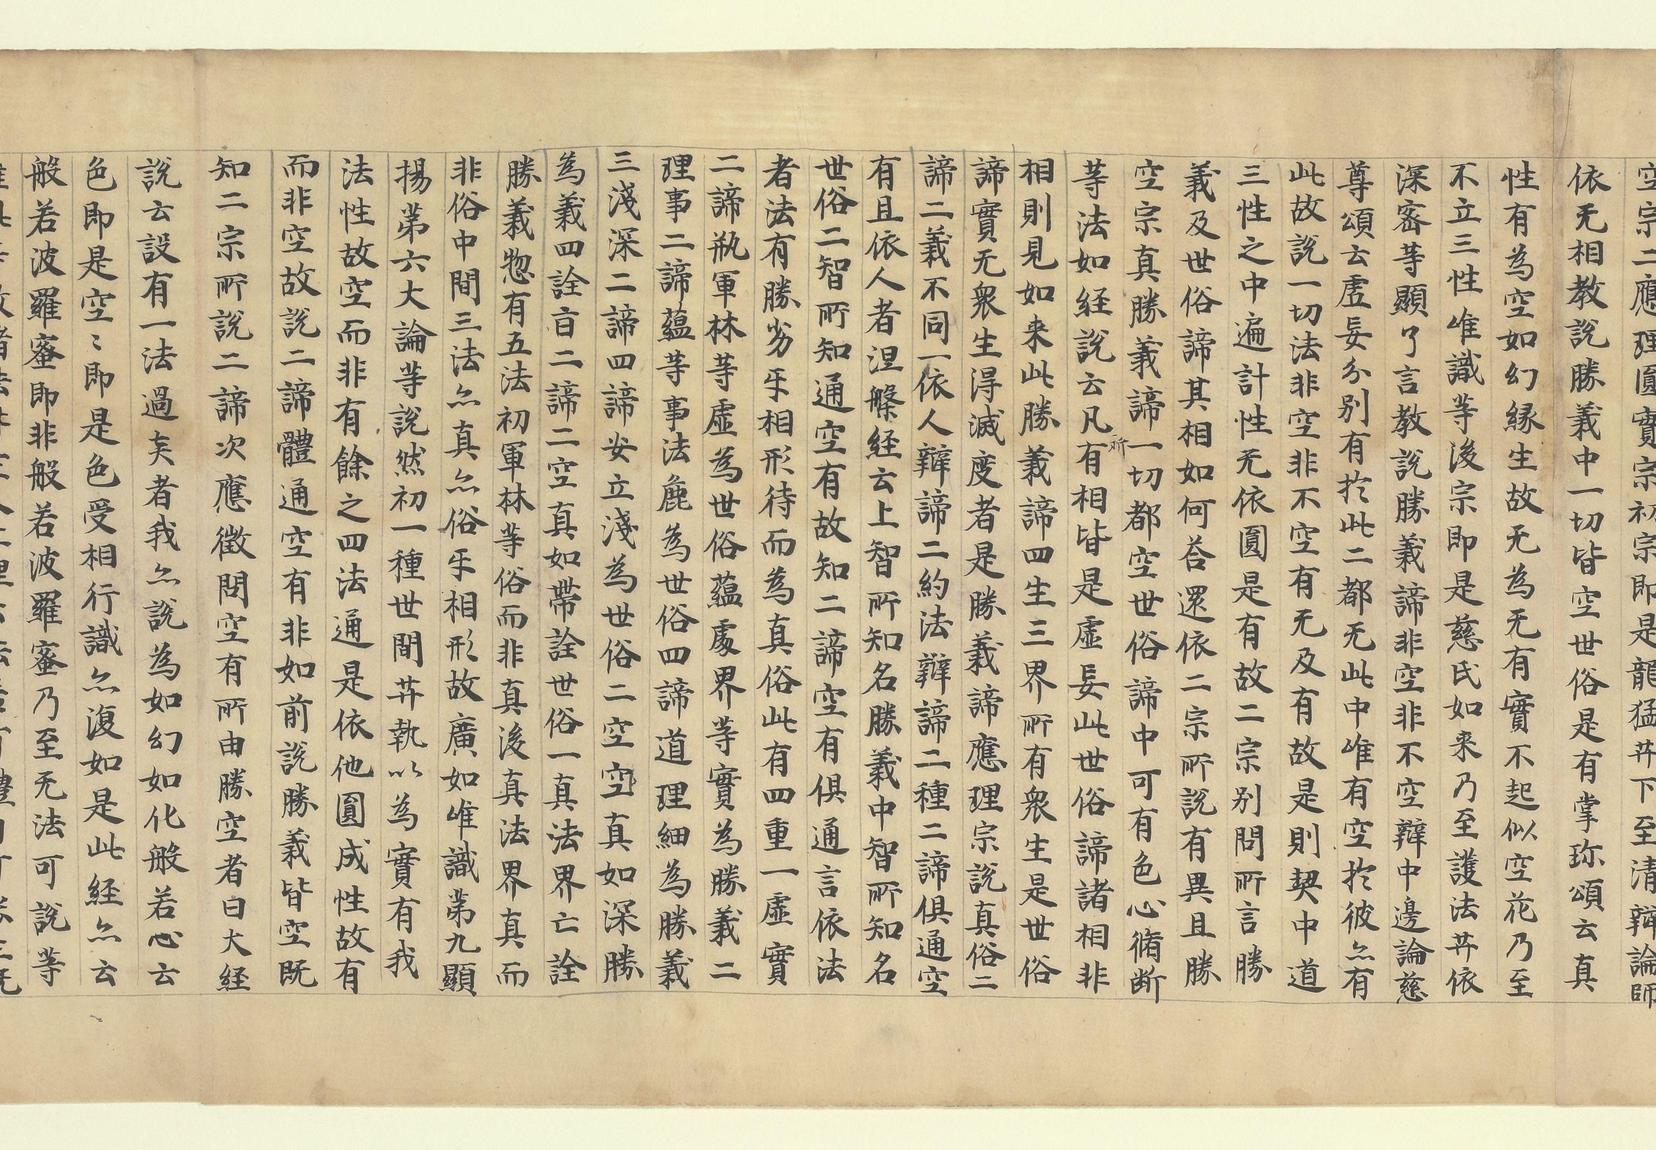 空宗二應理圓實宗初宗即是龍猛菩下至清辯論師
依无相教說勝義中一切皆空世俗是有掌珎頌云真
性有為空如幻縁生故无為无有實不起似空花乃至
不立三性唯識等後宗即是慈氏如来乃至護法菩依
深密等顯了言教說勝義諦非空非不空辯中邊論慈
尊頌云虛妄分別有於此二都无此中唯有空於彼亦有
此故說一切法非空非不空有无及有故是則契中道
三性之中遍計性无依圓是有故二宗別問所言勝
義及世俗諦其相如何荅還依二宗所說有異且勝
空宗真勝義諦一切都空世俗諦中可有色心脩断
等法如経說云凡所有相皆是虛妄此世俗諦諸相非
相則見如来此勝義諦四生三界所有衆生是世俗
諦實无衆生得滅度者是勝義諦應理宗說真俗二
諦二義不同一依人辯諦二約法辯諦二種二諦俱通空
有且依人者涅槃経云上智所知名勝義中智所知名
世俗二智所知通空有故知二諦空有俱通言依法
者法有勝劣乎相形待而為真俗此有四重一虛實
二諦瓶軍林等虛為世俗蘊處界等實為勝義二
理事二諦蘊等事法麁為世俗四諦道理細為勝義
三淺深二諦四諦安立淺為世俗二空空真如深勝
為義四詮㫖二諦二空真如帶詮世俗一真法界亡詮
勝義惣有五法初軍林等俗而非真後真法界真而
非俗中間三法亦真亦俗乎相形故廣如唯識第九顯
揚第六大論等說然初一種世間并執以為實有我
法性故空而非有餘之四法通是依他圓成性故有
而非空故說二諦體通空有非如前說勝義皆空既
知二宗所說二諦次應徵問空有所由勝空者曰大経
說云設有一法過矣者我亦說為如幻如化般若心云
色即是空〻即是色受相行識亦復如是此経亦云
般若波羅蜜即非般若波羅蜜乃至无法可說等